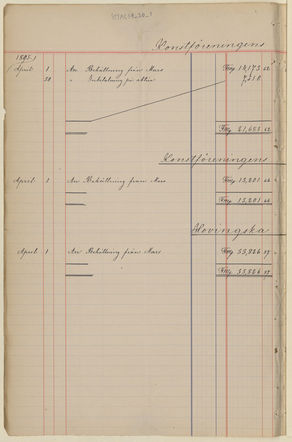 Konstföreningens
1885
April 1 An Behållning från Mars Kr 14,173 62
30 " Inbetalning på aktier 7,510
Kr 21,683 62
Konstföreningens
April 1 An Behållning från Mars Kr 15,201 26
Kr 15,201 26
Hovingska
April 1 An Behållning från Mars Kr 55,826 19
Kr 55,826 19